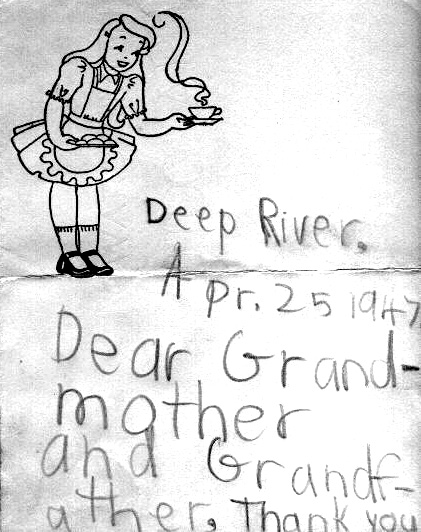 Deep River.
Apr. 25 1947
Dear Grand-
mother
and Grandf-
ather, Thank you